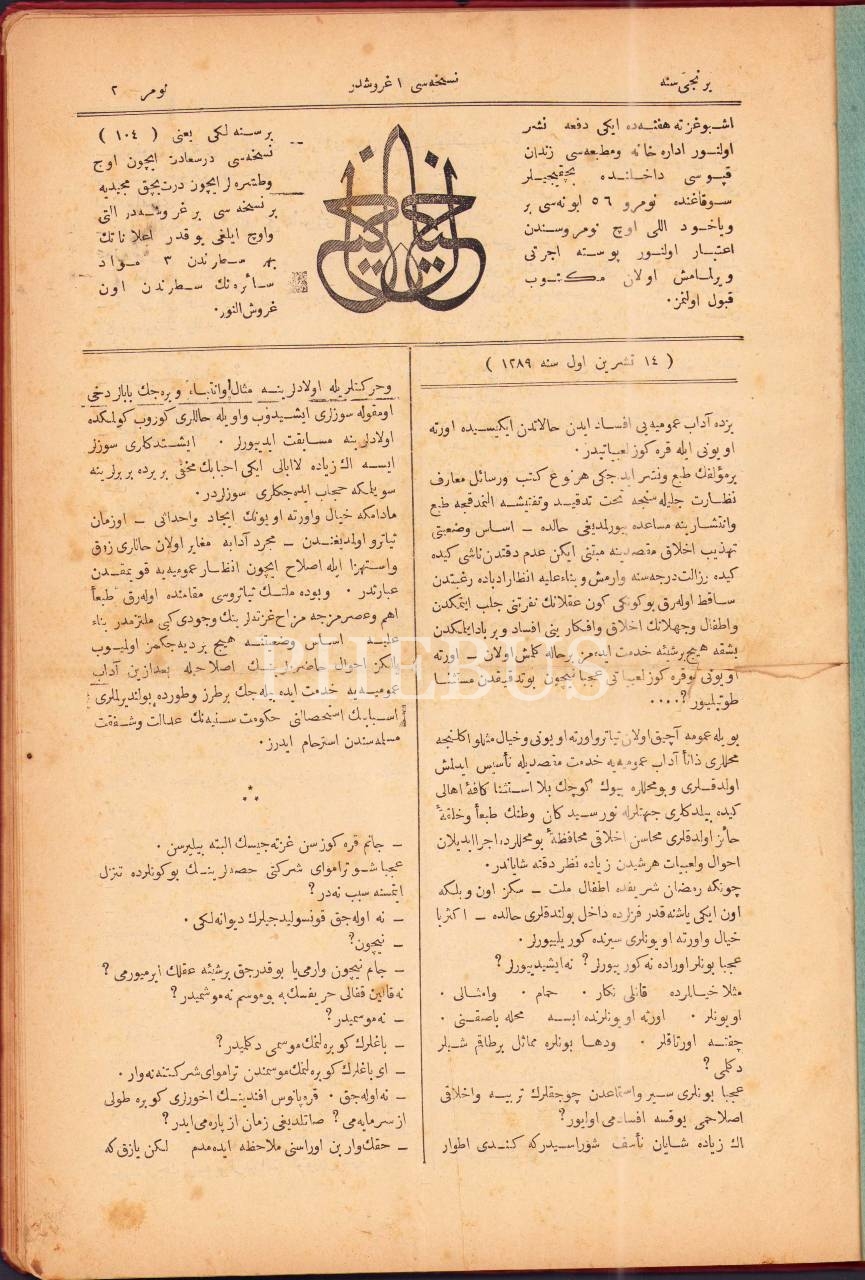 برنجى سنه
نسخه‌سى ١ غروشدر
نومرو ٢
اشبو غزته هفته‌ده ايكى دفعه نشر
اولنور اداره خانه و مطبعه‌سى زندان
قپوسى داخلنده بچقيجيلر
سوقاغنده نومرو ٥٦ ابونه‌سى بر
وياخود اللى اوچ نومروسندن
اعتبار اولنور پوسته اجرتى
ويرلمامش اولان مكتوب
قبول اولنمز.
خيال
برسنه‌لكى يعنى ( ١٠٤ )
نسخه‌سى درسعادت ايچون اوچ
وطشره‌لر ايچون درت بچق مجيديه
بر نسخه‌سى بر غروشدر التى
واوچ ايلغى يوقدر اعلاناتك
بهر سطرندن ٣ مواد
سائره‌نك سطرندن اون
غروش النور.
( ١٤ تشرين اول سنه ١٢٨٩ )
بزده آداب عموميه‌يى افساد ايدن حالاتدن ايكيسيده اورته
اويونى ايله قره كوز لعبياتيدر.
برمؤلفك طبع ونشر ايده‌جكى هر نوع كتب ورسائل معارف
نظارت جليله‌سنجه تحت تدقيق وتفتيشه النمدقجه طبع
وانتشارينه مساعده بيورلمديغى حالده – اساس وضعيتى
تهذيب اخلاق مقصدينه مبتنى ايكن عدم دقتدن ناشى كيده
كيده رزالت درجه‌سنه وارمش وبناء عليه انظار ادباده رغبتدن
ساقط اوله‌رق بوكونكى كون عقلانك نفرتنى جلب ايتمكدن
واطفال وجهلانك اخلاق وافكارينى افساد وبرباد ايتمكدن
بشقه هيچ برشيئه خدمت ايده‌مز برحاله كلمش اولان – اورته
اويونى و قره كوز لعبياتى عجبا نيچون بوتدقيقدن مستثنا
طوتيليور؟....
بويله عمومه آچيق اولان تياترو اورته اويونى وخيال مثللو اكلنجه
محللرى ذاتاً آداب عموميه‌يه خدمت مقصديله تأسيس ايدلمش
اولدقلرى وبومحللره بيوك كوچك بلا استثنا كافۀ اهالى
كيده بيلدكلرى جهتلرله نورسيدكان وطنك طبعاً وخلقةً
حائز اولدقلرى محاسن اخلاقى محافظةً بومحللرده اجرا ايديلان
احوال ولعبيات هرشيدن زياده نظر دقته شاياندر.
چونكه رمضان شريفده اطفال ملت – سكز اون وبلكه
اون ايكى ياشنه‌قدر قزلرده داخل بولندقلرى حالده – اكثريا
خيال واورته اويونلرى سيرنده كوريليورلر.
عجبا بونلر اوراده نه‌كوريورلر؟ نه‌ايشيديورلر؟
مثلا خياللرده قانلى نكار. حمام. وامثالى.
اويونلر. اورته اويونلرنده ايسه محله باصقنى.
چفته اورتاقلر. ودها بونلره مماثل برطاقم شيلر
دكلمى؟
عجبا بونلرى سير واستماعدن چوجقلرك تربيه واخلاقى
اصلاحمى يوقسه افسادمى اوليور؟
اك زياده شايان تأسف شوراسيدركه كندى اطوار
وحركتلريله اولادلرينه مثال وانتباه ويره‌جك بابالر دخى
اومقوله سوزلرى ايشيدوب واويله حاللرى كوروب كولمكده
اولادلرينه مسابقت ايدييورلر. ايشتدكلرى سوزلر
ايسه اك زياده لاابالى ايكى احبابك مخفى بر يرده بربرلرينه
سويلمكه حجاب ايده‌جكلرى سوزلردر.
مادامكه خيال واورته اويونك ايجاد واحداثى – اوزمان
تياترو اولمديغندن – مجرد آدابه مغاير اولان حاللرى ذوق
واستهزا ايله اصلاح ايچون انظار عموميه‌يه قويمقدن
عبارتدر. وبوده ملتك تياتروسى مقامنده اوله‌رق طبعاً
اهم وعصرمزجه مزاح غزته‌لرينك وجودى كبى ملتزمدر بناء
عليه اساس وضعيتنه هيچ برديه‌جكمز اوليوب
يالكز احوال حاضره‌لرينك اصلاحيله بعد ازين آداب
عموميه‌يه خدمت ايده بيله‌جك برطرز وطورده بولنديرلملرى
اسبابنك استحصالنى حكومت سنيه‌نك عدالت وشفقت
مسلمه‌سندن استرحام ايدرز.
⁂
– جانم قره كوز سن غزته‌جيسك البته بيليرسن.
عجبا شو تراموای شركتى حصه‌لرينك بوكونلرده تنزل
ايتمسنه سبب نه‌در؟
– نه اوله‌جق قونسوليدجيلرك ديوانه‌لكى.
– نيچون؟
– جانم نيچون وارمى يا بوقدرجق برشيئه عقلك ايرميورمى؟
نه قالين قفالى حريفسك به بوموسم نه‌موسميدر؟
– نه‌موسميدر؟
– باغلرك كوبره‌لنمك موسمى دكلميدر؟
– اى باغلرك كوبره‌لنمك موسمندن تراموای شركتنه نه‌وار.
– نه‌اوله‌جق. قره‌پانوس افندينك اخورلرى كوبره طولى
از سرمايه‌مى؟ صاتلديغى زمان از پاره‌مى ايدر؟
– حقك وار بن اوراسنى ملاحظه ايده‌مدم لكن يازق كه